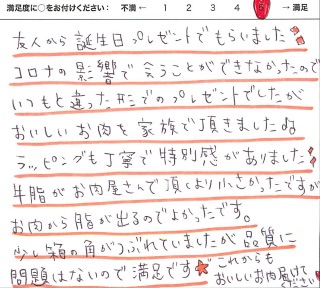 満足度に○をお付けください: 不満 ← 1 2 3 4 5 → 満足
友人から誕生日プレゼントでもらいました
コロナの影響で会うことができなかったので
いつもと違った形でのプレゼントでしたが
おいしいお肉を家族で頂きましたね
ラッピングも丁寧で特別感がありました
牛脂がお肉屋さんで頂くより小さかったですが
お肉から脂が出るのでよかったです。
少し箱の角がつぶれていましたが品質に
問題はないので満足です★これからも
おいしいお肉届けて
ください